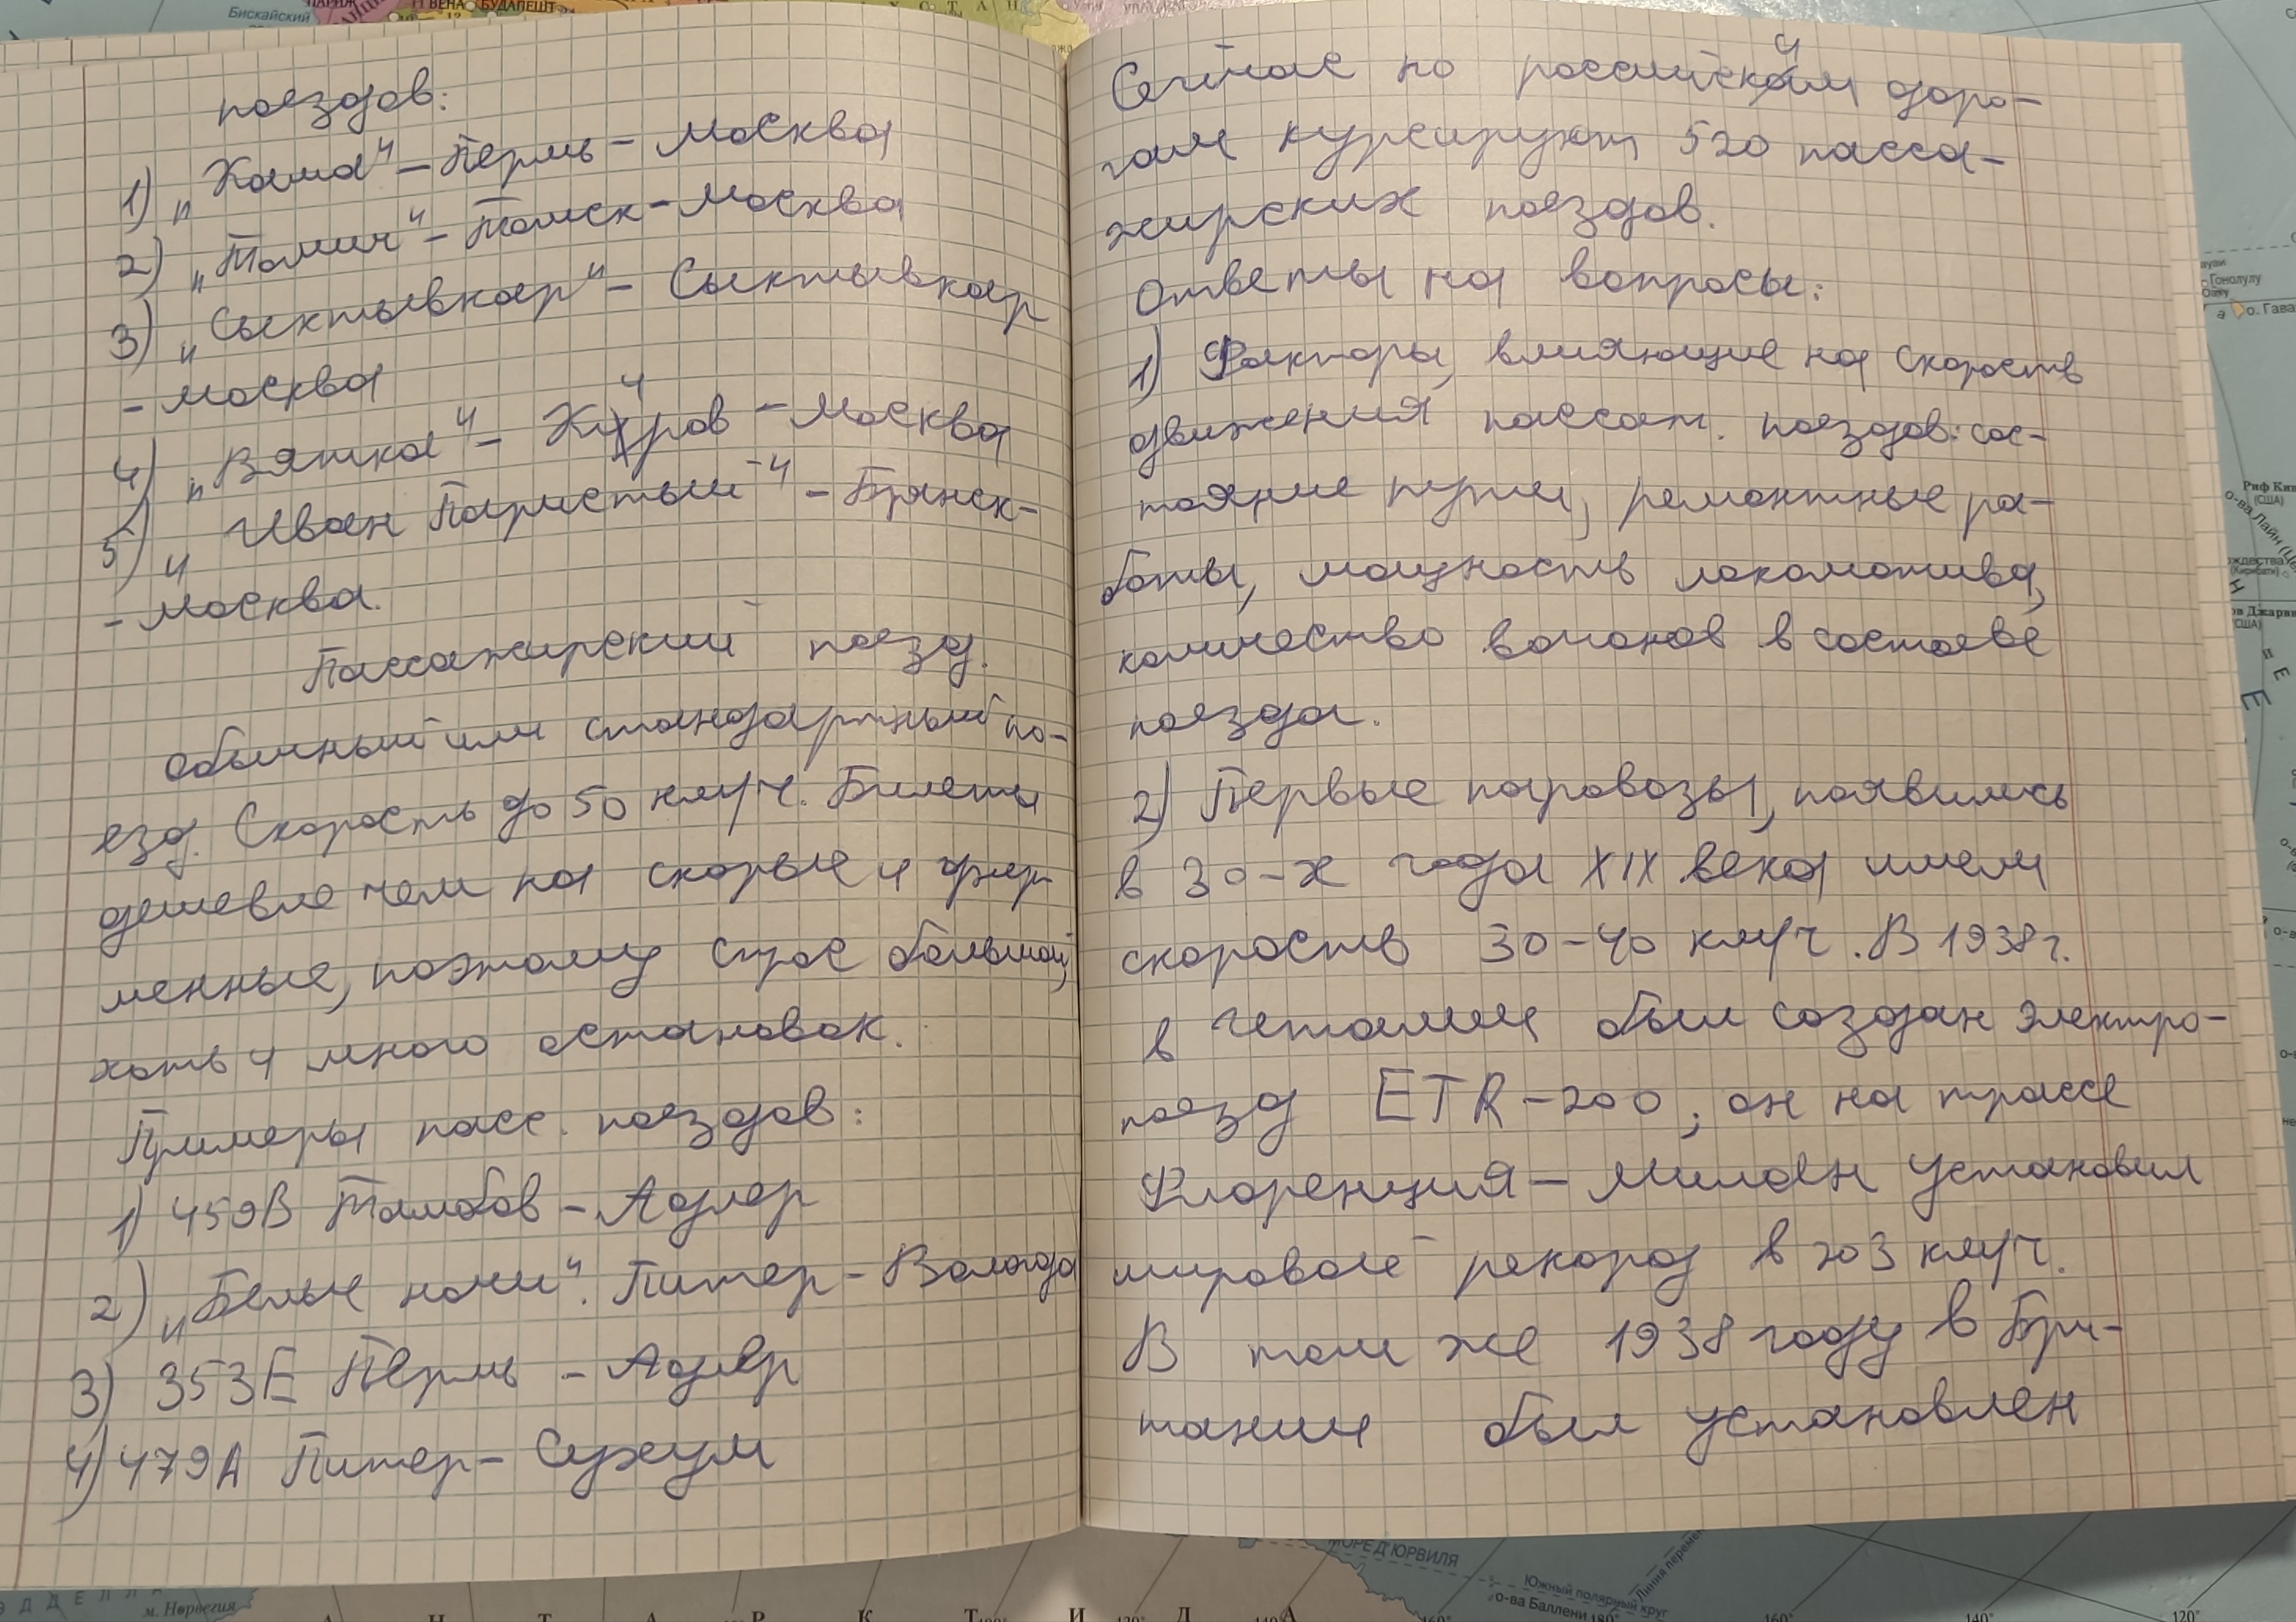 поездов:
1) „Кама" – Пермь – Москва
2) „Томич" – Томск – Москва
3) „Сыктывкар" – Сыктывкар
– Москва
4) „Вятка" – Киров – Москва
5) „Иван Паристый" – Брянск –
– Москва.
Пассажирский поезд.
Обычный или стандартный по-
езд. Скорость до 50 км/ч. Билеты
дешевле чем на скорые и фир-
менные, поэтому спрос большой,
хоть и много остановок.
Примеры пасс. поездов:
1) 459В Тамбов – Адлер
2) „Белые ночи". Питер – Вологда
3) 353Е Пермь – Адлер
4) 479А Питер – Сухум
Сейчас по российским доро-
гам курсируют 520 пасса-
жирских поездов.
Ответы на вопросы:
1) Факторы, влияющие на скорость
движения пассаж. поездов: сос-
тояние пути, ремонтные ра-
боты, мощность локомотива,
количество вагонов в составе
поезда.
2) Первые паровозы, появились
в 30-х года XIX века имели
скорость 30-40 км/ч. В 1938 г.
в Италии был создан электро-
поезд ETR-200, он на трассе
Флоренция – Милан установил
мировой рекорд в 203 км/ч.
В том же 1938 году в Бри-
тании был установлен
Бискайский
ВЕНА
БУДАПЕШТ
Гонолулу
о. Гава
Риф Кин
(США)
о-ва Лайн
(США)
МОРЕ Д'ЮРВИЛЯ
Южный полярный круг
о-ва Баллени
180°
160°
140°
120°
м. Норвегия
А Н Т А Р К Т И Д А